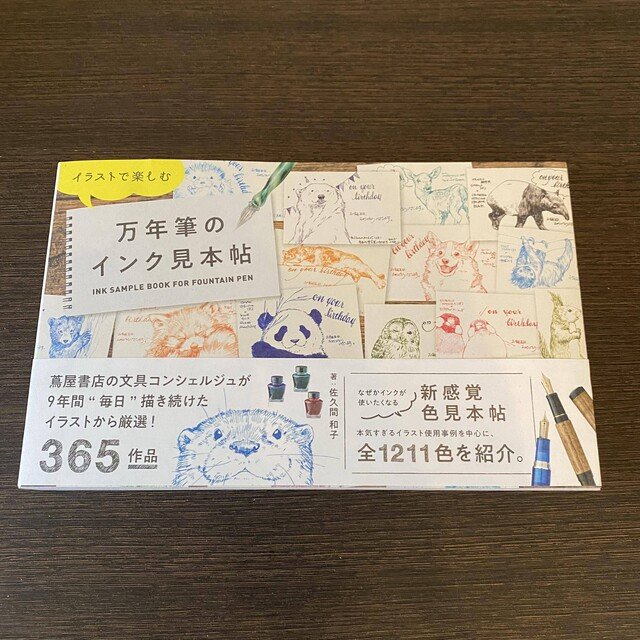 イラストで楽しむ
万年筆の
インク見本帖
INK SAMPLE BOOK FOR FOUNTAIN PEN
on your
birthday
on your
birthday
on your birthday
on your
birthday
on your
birthday
蔦屋書店の文具コンシェルジュが
9年間“毎日”描き続けた
イラストから厳選！
365作品
著：佐久間和子
なぜかインクが
使いたくなる
新感覚
色見本帖
本気すぎるイラスト使用事例を中心に、
全1211色を紹介。